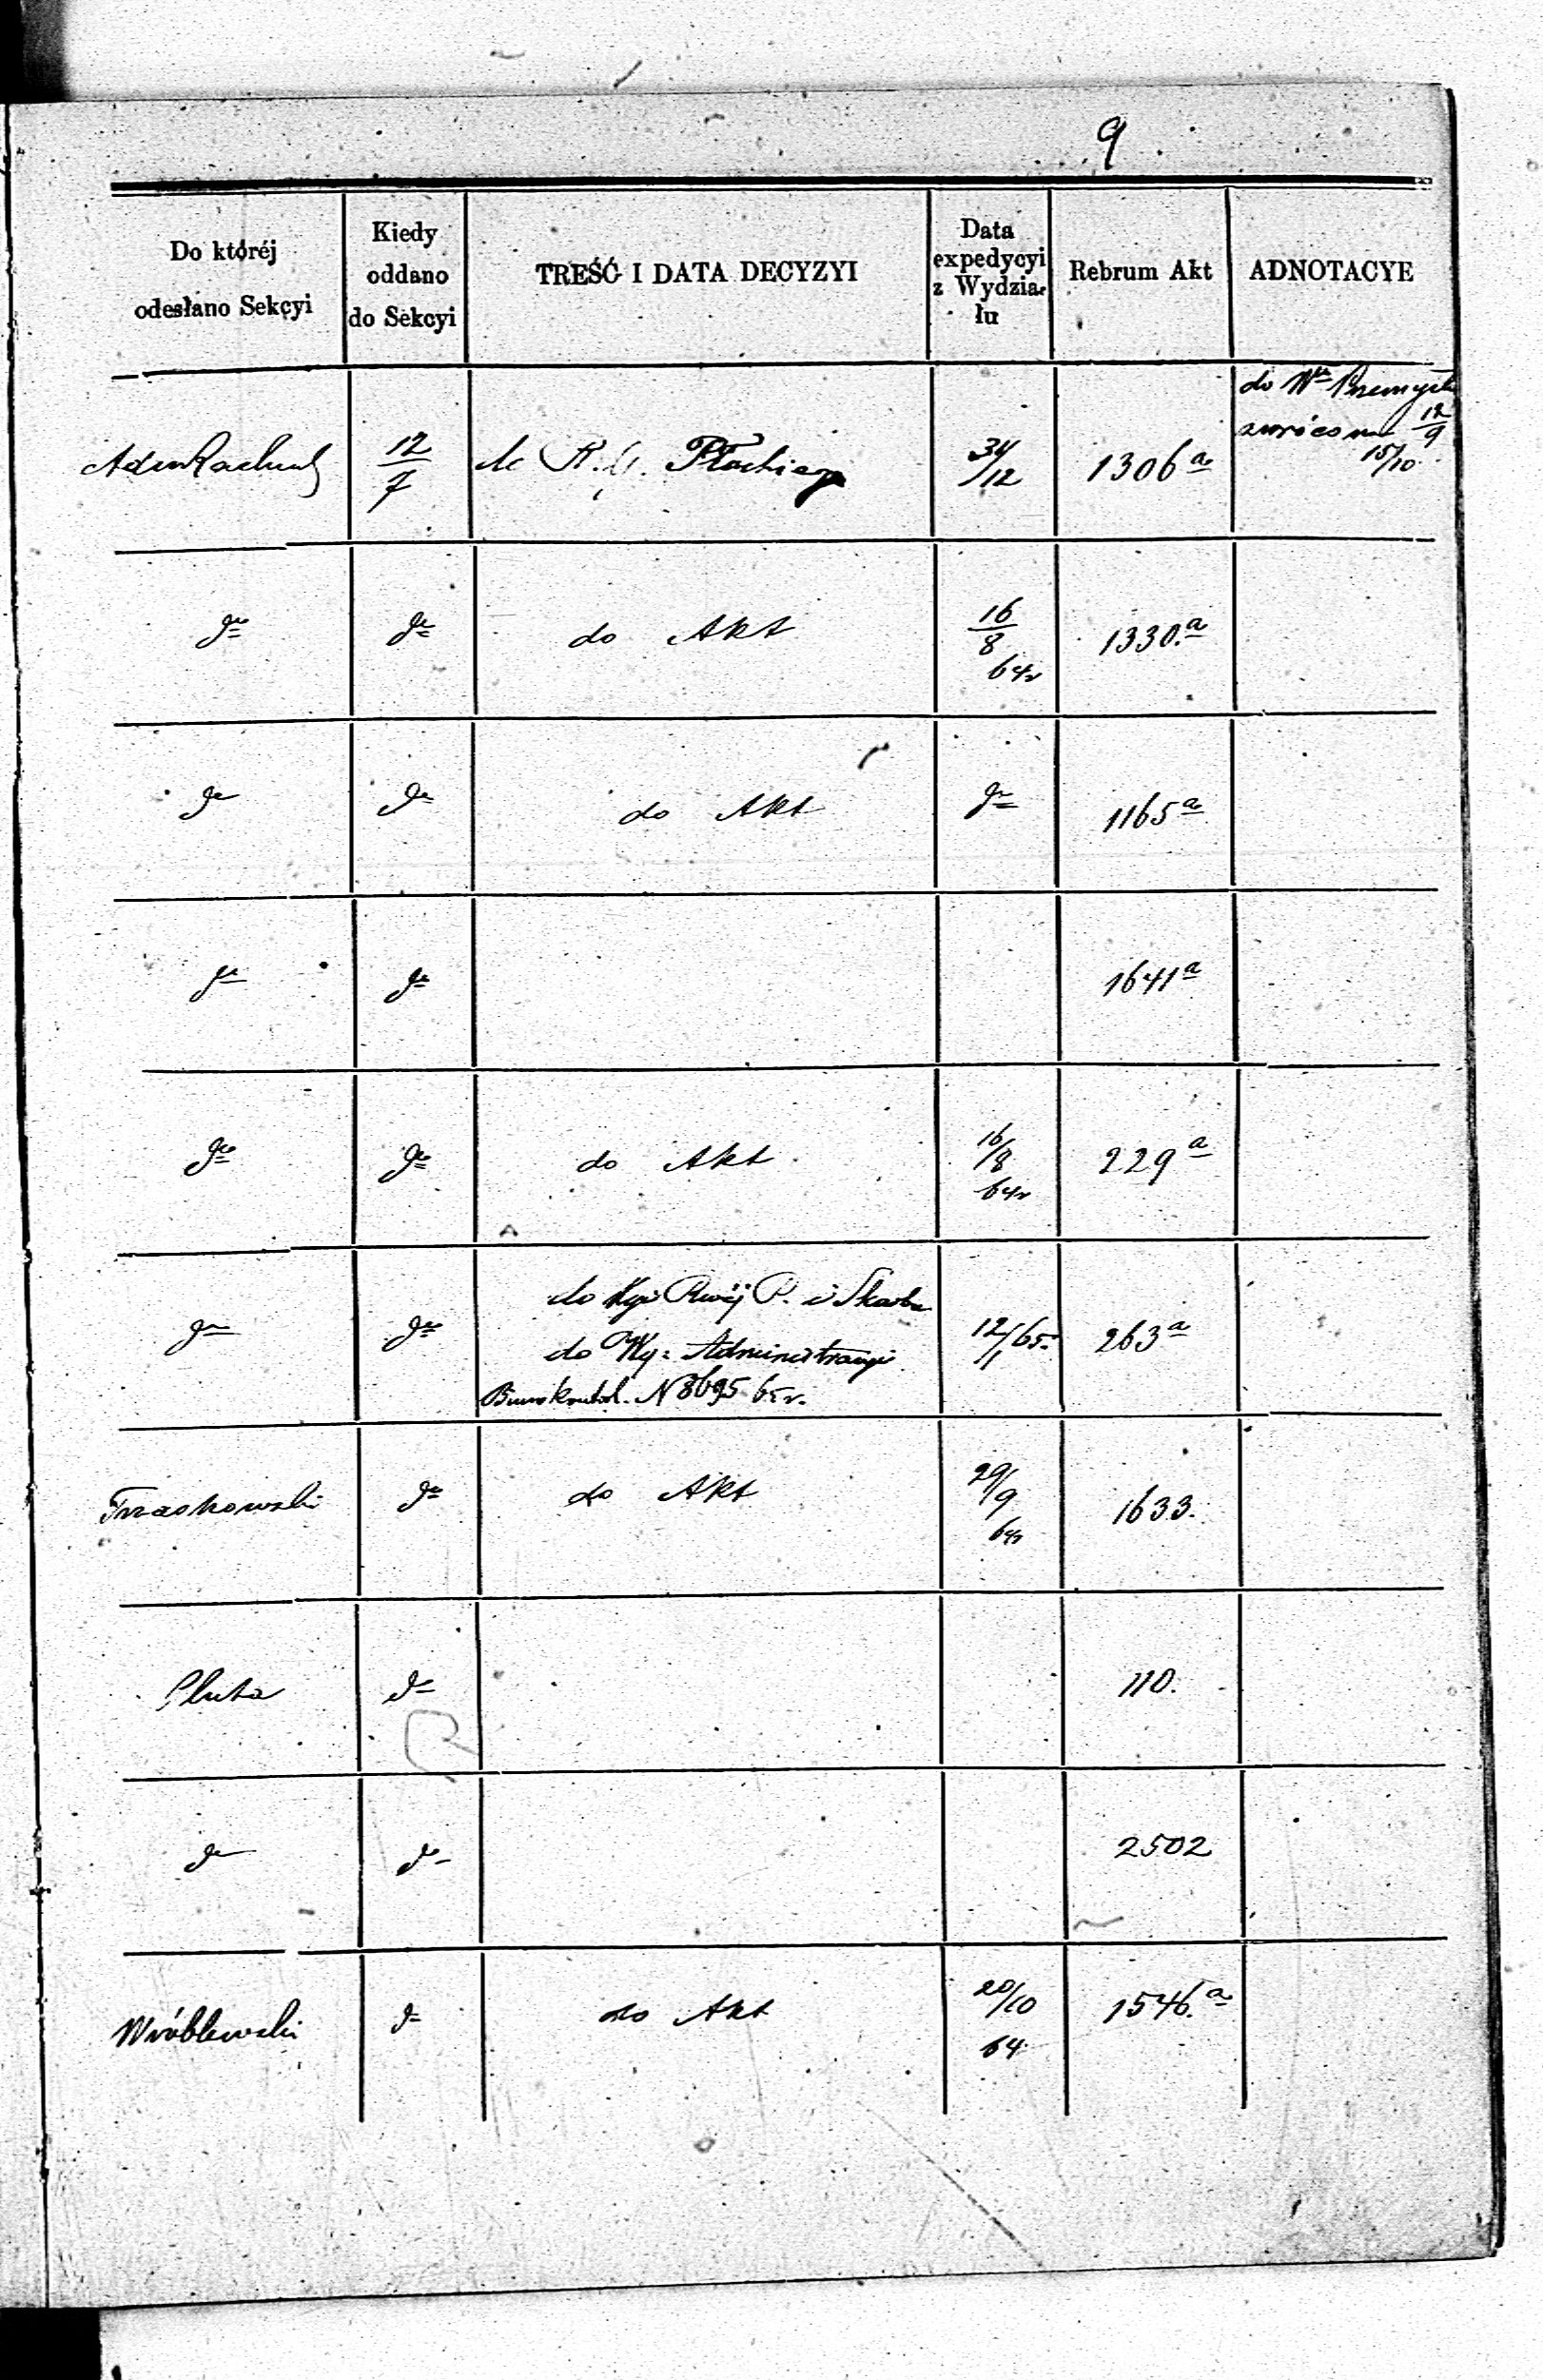 9
Do któréj
odesłano Sekcyi
Kiedy
oddano
do Sekcyi
TREŚĆ I DATA DECYZYI
Data
expedycyi
z Wydzia-
łu
Rebrum Akt
ADNOTACYE
12/7
R. G. Płockiego
/12
1306a
do Wu Przemysłu
zwrócono 12/9
15/10
do
do
do Akt
16/8
64r
1330.a
do
do
do Akt
do
1165a
do
do
1641a
do
do
do Akt
16/8
64r
229a
do
do
do Kyi Rwéj P. i Skarbu
do Wy: Administracyi
N 8695 65r.
12/1 65.
263a
Trzaskowski
do
do Akt
29/9
64r
1633.
Pluta
do
110.
do
do
2502
Wróblewski
do
do Akt
20/10
64
1546.a